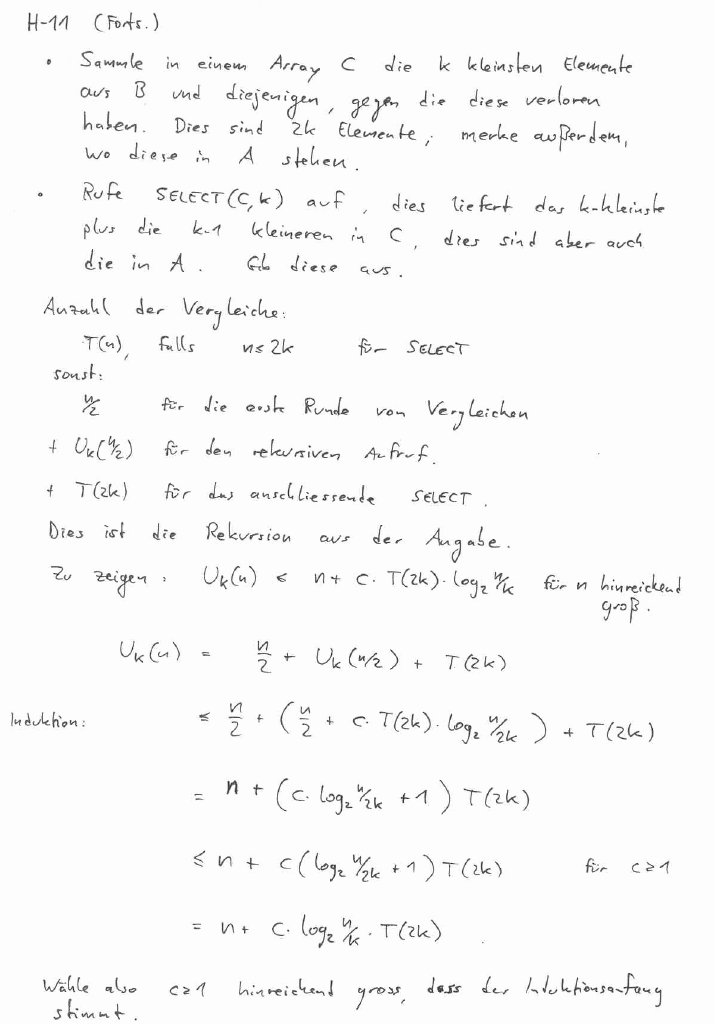 H-11 (Forts.)
• Sammle in einem Array C die k kleinsten Elemente
aus B und diejenigen, gegen die diese verloren
haben. Dies sind 2k Elemente; merke außerdem,
wo diese in A stehen.
• Rufe SELECT(C,k) auf, dies liefert das k-kleinste
plus die k-1 kleineren in C, dies sind aber auch
die in A. Gib diese aus.
Anzahl der Vergleiche:
T(n), falls n≤2k für SELECT
sonst:
n/2 für die erste Runde von Vergleichen
+ Uk(n/2) für den rekursiven Aufruf.
+ T(2k) für das anschliessende SELECT.
Dies ist die Rekursion aus der Angabe.
Zu zeigen: Uk(n) ≤ n + c·T(2k)·log₂ n/k für n hinreichend
groß.
Uk(n) = n/2 + Uk(n/2) + T(2k)
Induktion: ≤ n/2 + (n/2 + c·T(2k)·log₂ n/2k) + T(2k)
= n + (c·log₂ n/2k + 1) T(2k)
≤ n + c(log₂ n/2k + 1) T(2k) für c≥1
= n + c·log₂ n/k · T(2k)
Wähle also c≥1 hinreichend gross, dass der Induktionsanfang
stimmt.